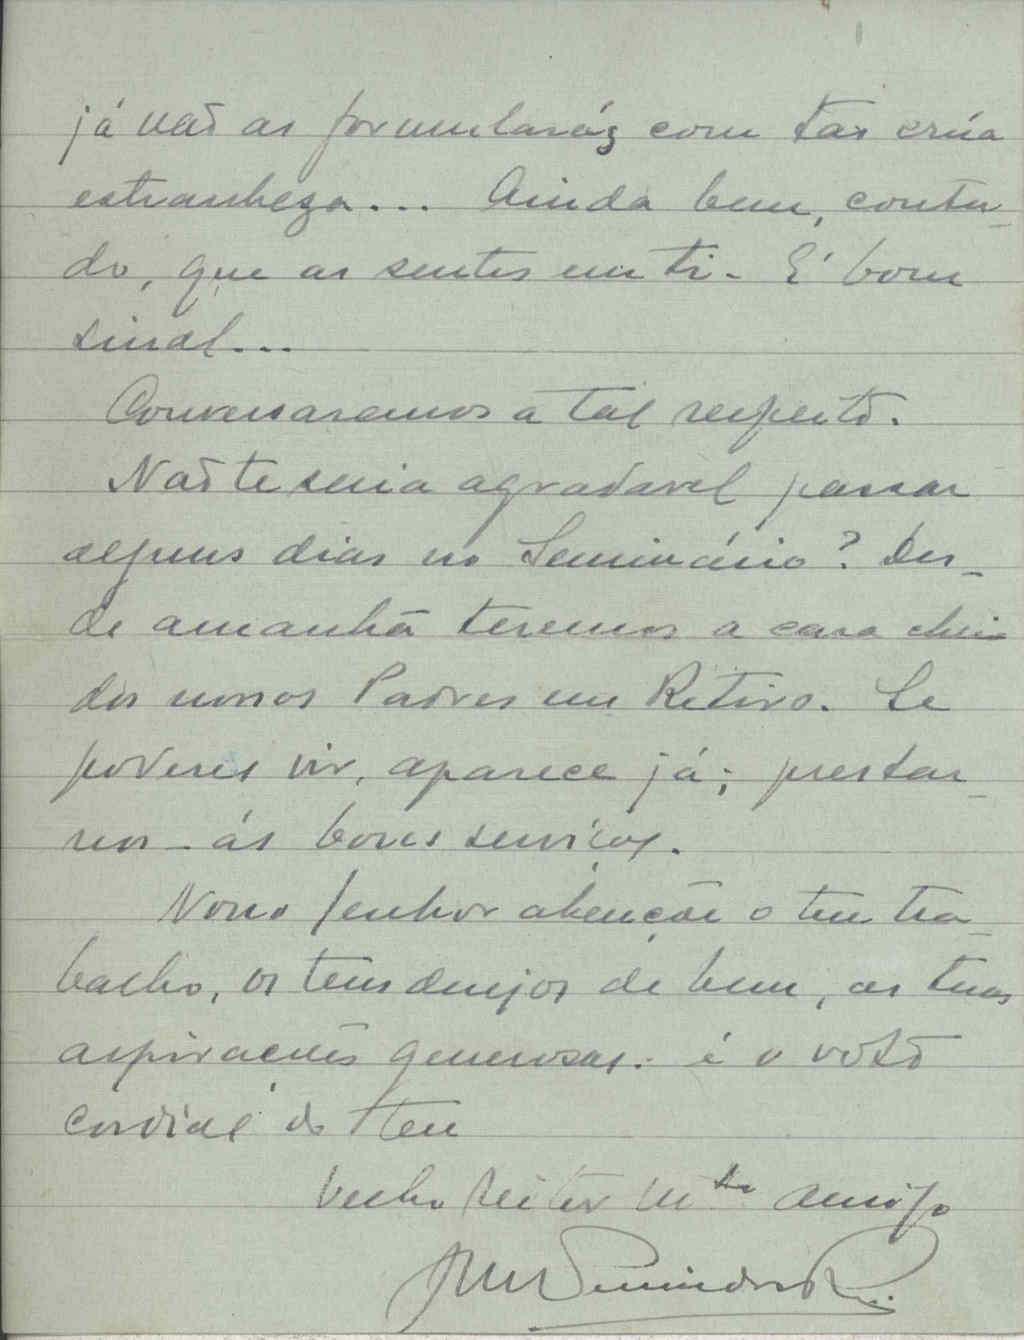 já não as formularás com tão crúa
estranheza... Ainda bem, contu-
do, que as sentes em ti. É bom
sinal...
Conversaremos a tal respeito.
Não te seria agradavel passar
alguns dias no Seminário? Des-
de amanhã teremos a casa cheia
dos nossos Padres em Retiro. Se
poderes vir, aparece já; prestar-
nos-ás bons serviços.
Nosso Senhor abençôe o teu tra-
balho, os teus desejos de bem, as tuas
aspirações generosas: é o voto
cordial do teu
velho Reitor Mto amigo